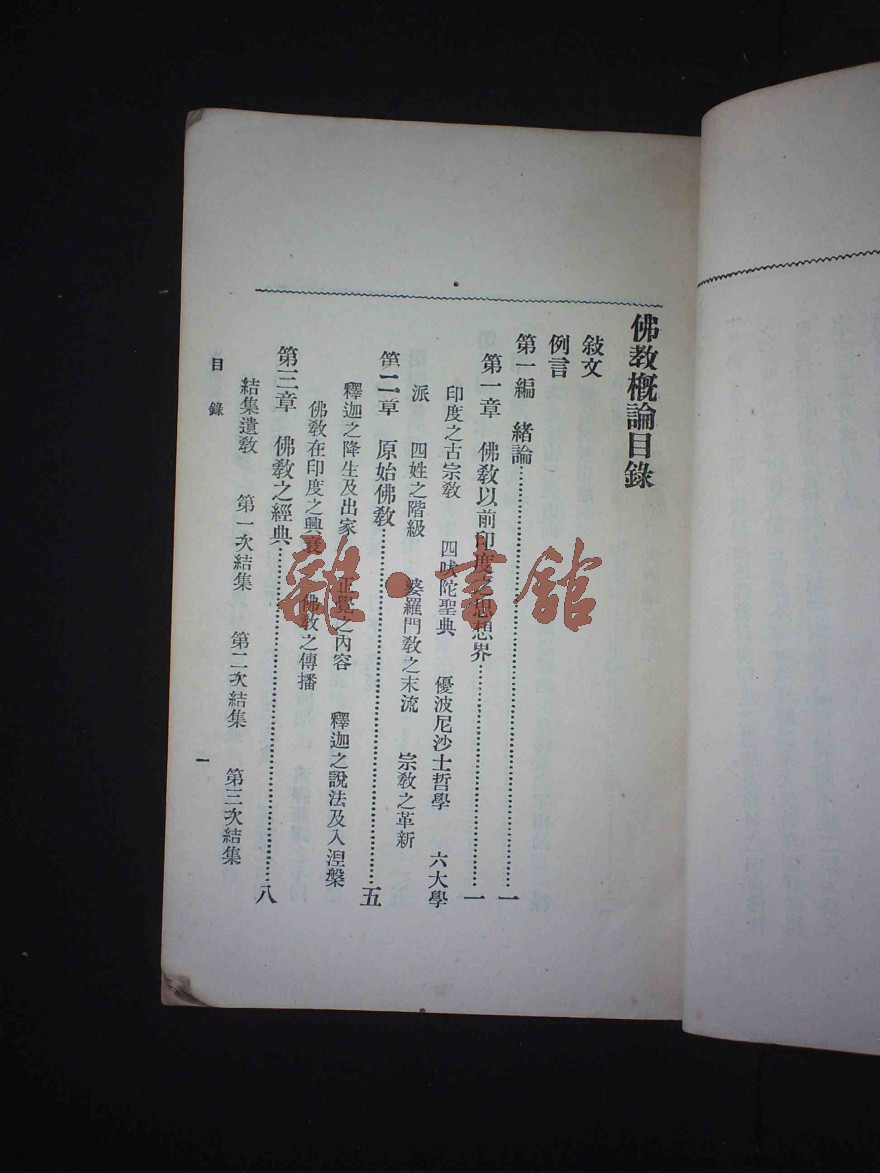 佛教概論目錄
敍文
例言
第一編 緒論……一
第一章 佛教以前印度之思想界……一
印度之古宗教 四吠陀聖典 優波尼沙士哲學 六大學
派 四姓之階級 婆羅門教之末流 宗教之革新
第二章 原始佛教……五
釋迦之降生及出家 正覺之內容 釋迦之說法及入涅槃
佛教在印度之興衰 佛教之傳播
第三章 佛教之經典……八
結集遺教 第一次結集 第二次結集 第三次結集
目錄
一
雜·書館